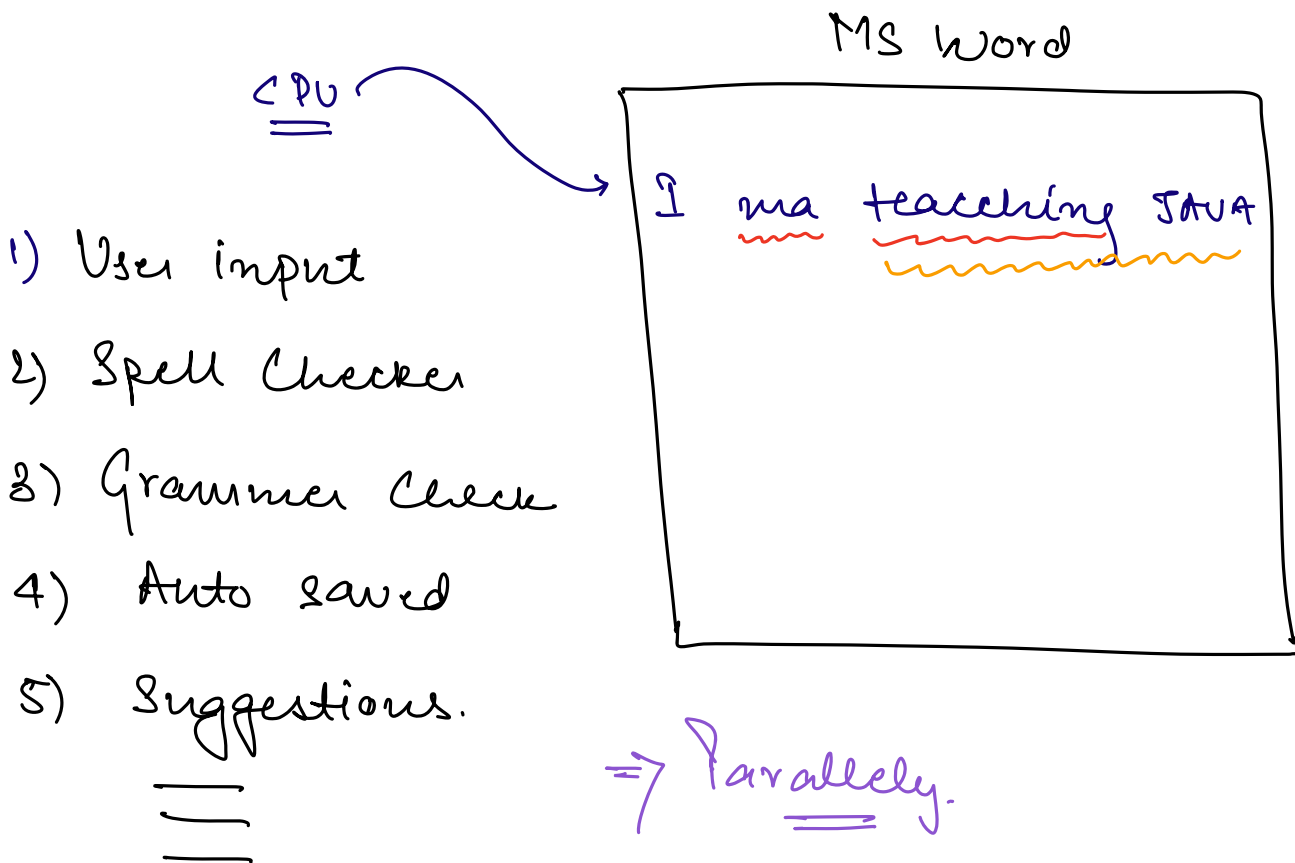 MS Word
CPU
I ma teacching JAVA
1) User input
2) Spell Checker
3) Grammer Check
4) Auto saved
5) Suggestions.
=> Parallely.